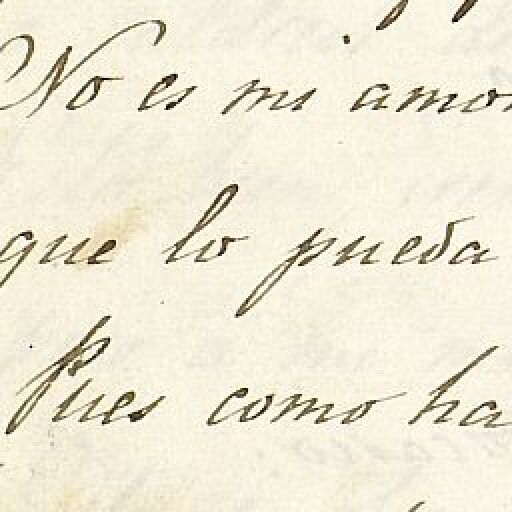 No es mi amor
que lo pueda
Pues como ha